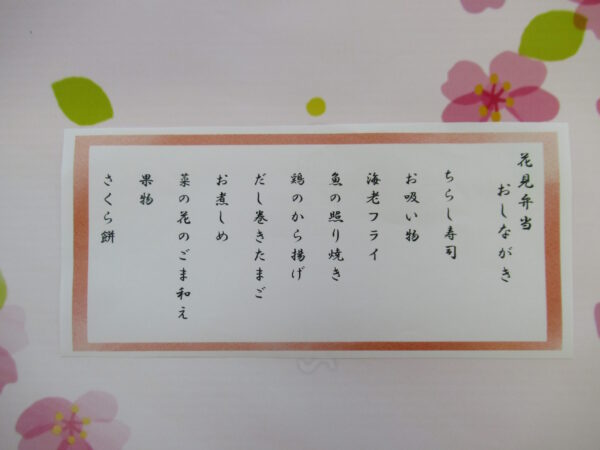 花見弁当
おしながき
ちらし寿司
お吸い物
海老フライ
魚の照り焼き
鶏のから揚げ
だし巻きたまご
お煮しめ
菜の花のごま和え
果物
さくら餅